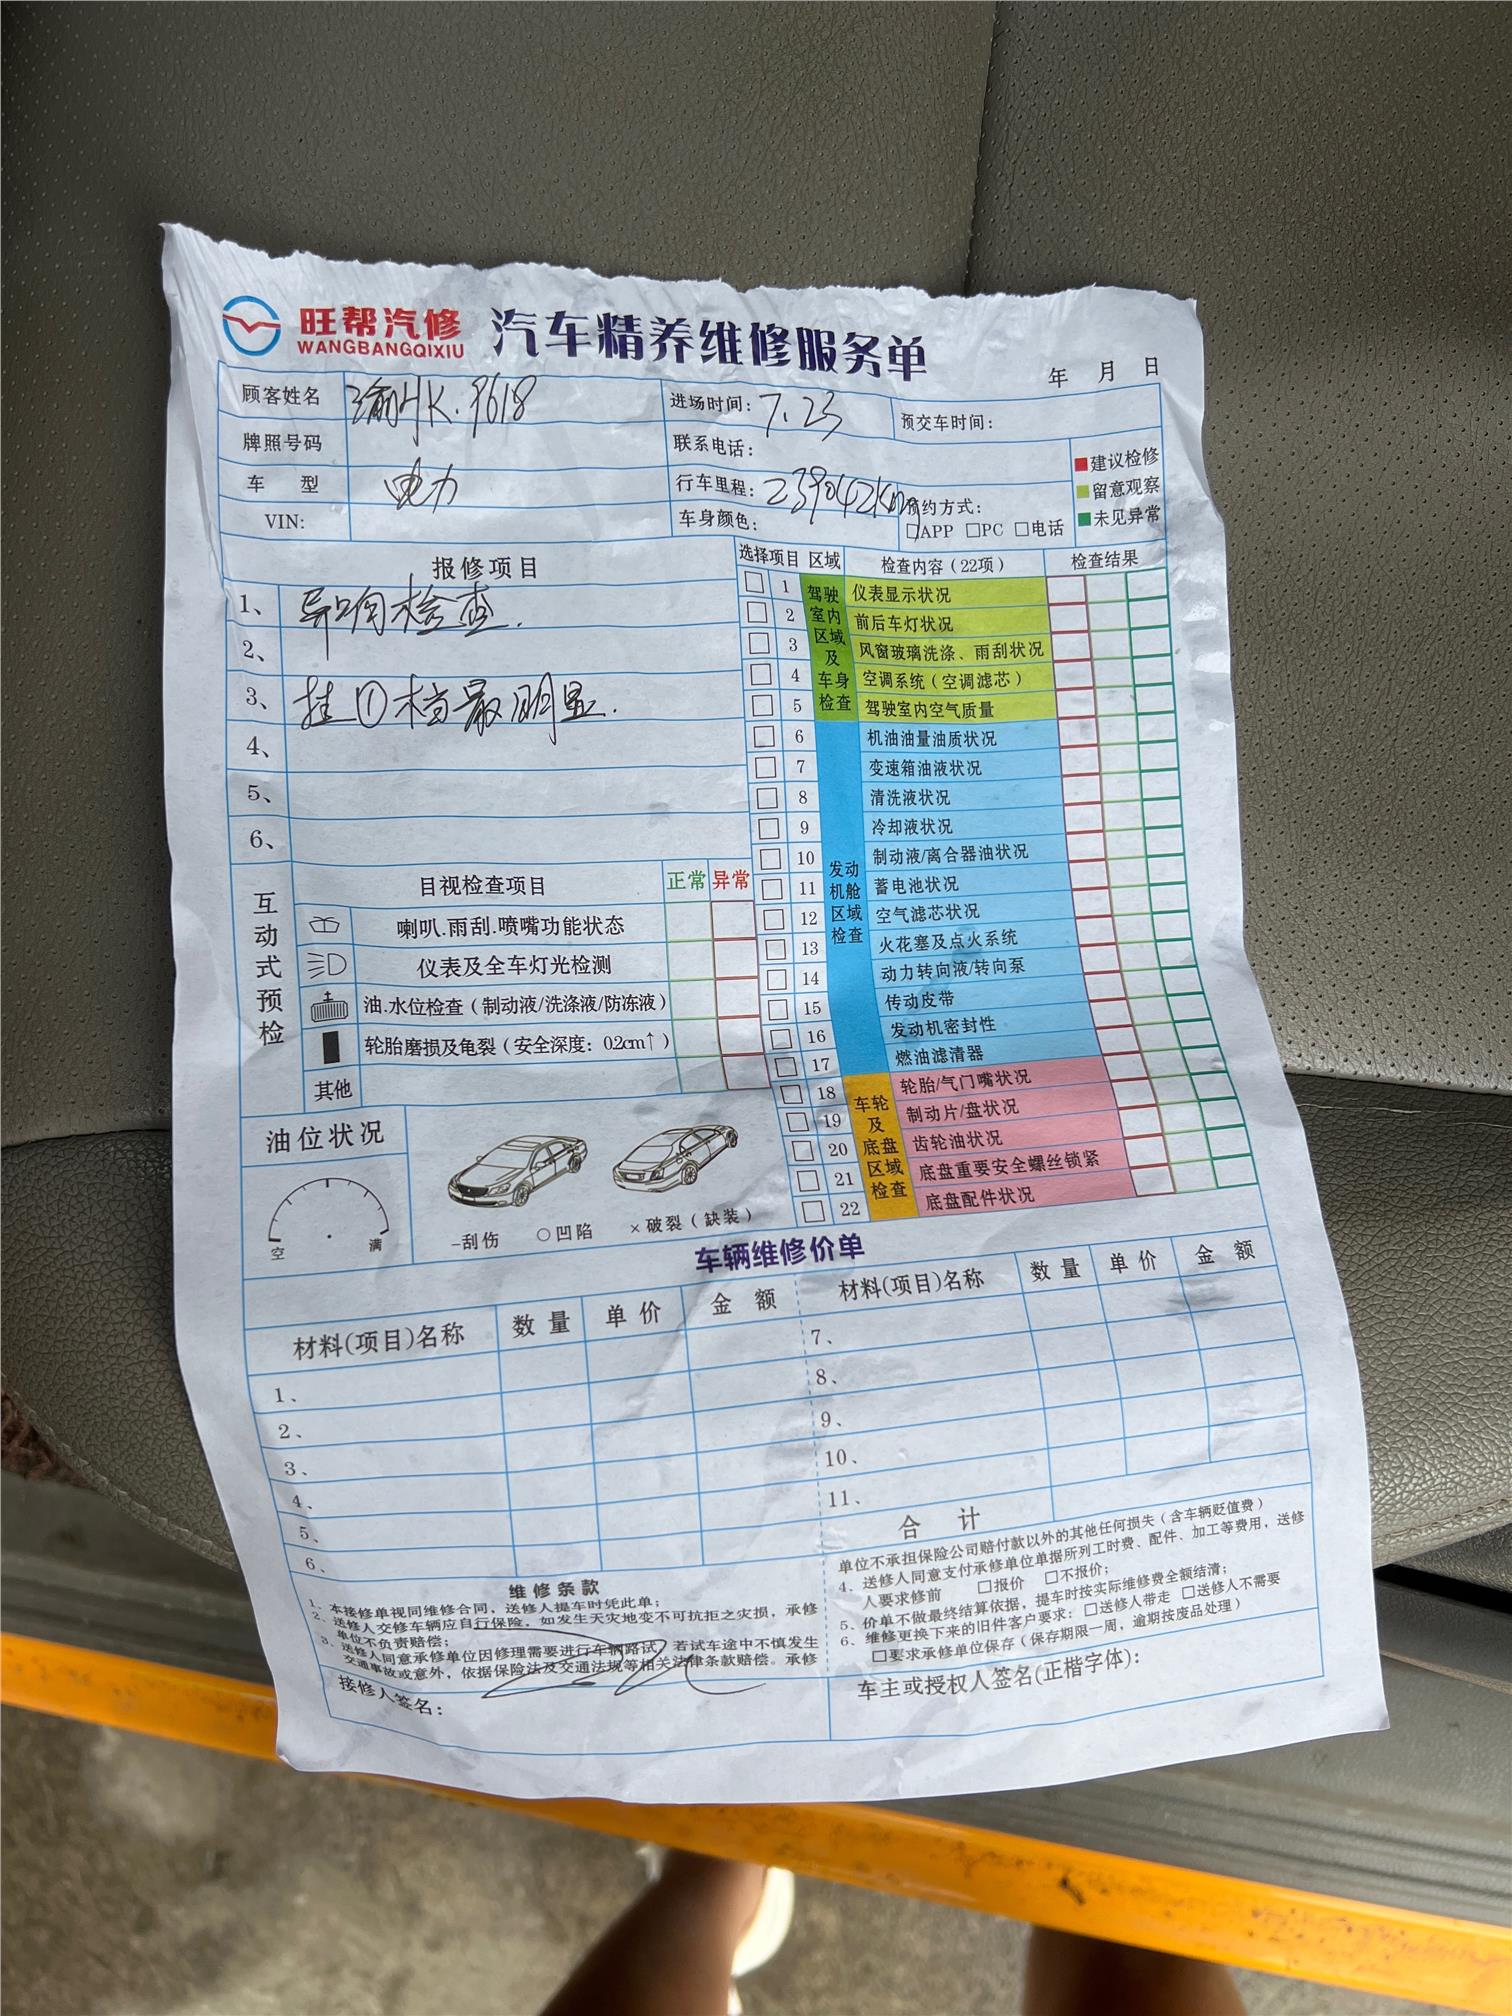 旺帮汽修
WANGBANGQIXIU
汽车精养维修服务单
年 月 日
顾客姓名 渝HK.9618 进场时间：7.23 预交车时间：
牌照号码 联系电话：
车 型 电力 行车里程：239042Km
VIN: 车身颜色： 预约方式：
□APP □PC □电话
建议检修
留意观察
未见异常
报修项目
1、异响检查.
2、
3、挂①档最明显.
4、
5、
6、
互动式预检
目视检查项目 正常 异常
喇叭.雨刮.喷嘴功能状态
仪表及全车灯光检测
油.水位检查（制动液/洗涤液/防冻液）
轮胎磨损及龟裂（安全深度：0.2cm↑）
其他
油位状况
空 满
-刮伤 ○凹陷 ×破裂（缺装）
选择项目 区域 检查内容（22项） 检查结果
驾驶室内区域及车身检查
1 仪表显示状况
2 前后车灯状况
3 风窗玻璃洗涤、雨刮状况
4 空调系统（空调滤芯）
5 驾驶室内空气质量
发动机舱区域检查
6 机油油量油质状况
7 变速箱油液状况
8 清洗液状况
9 冷却液状况
10 制动液/离合器油状况
11 蓄电池状况
12 空气滤芯状况
13 火花塞及点火系统
14 动力转向液/转向泵
15 传动皮带
16 发动机密封性
17 燃油滤清器
车轮及底盘区域检查
18 轮胎/气门嘴状况
19 制动片/盘状况
20 齿轮油状况
21 底盘重要安全螺丝锁紧
22 底盘配件状况
车辆维修价单
材料(项目)名称 数量 单价 金额
1、
2、
3、
4、
5、
6、
材料(项目)名称 数量 单价 金额
7、
8、
9、
10、
11、
合 计
维修条款
1、本接修单视同维修合同，送修人提车时凭此单；
2、送修人交修车辆应自行保险，如发生天灾地变不可抗拒之灾损，承修
单位不负责赔偿；
3、送修人同意承修单位因修理需要进行车辆路试，若试车途中不慎发生
交通事故或意外，依据保险法及交通法规等相关法律条款赔偿。承修
接修人签名：
单位不承担保险公司赔付款以外的其他任何损失（含车辆贬值费）
4、送修人同意支付承修单位单据所列工时费、配件、加工等费用，送修
人要求修前 □报价 □不报价；
5、价单不做最终结算依据，提车时按实际维修费全额结清；
6、维修更换下来的旧件客户要求：□送修人带走 □送修人不需要
□要求承修单位保存（保存期限一周，逾期按废品处理）
车主或授权人签名(正楷字体)：